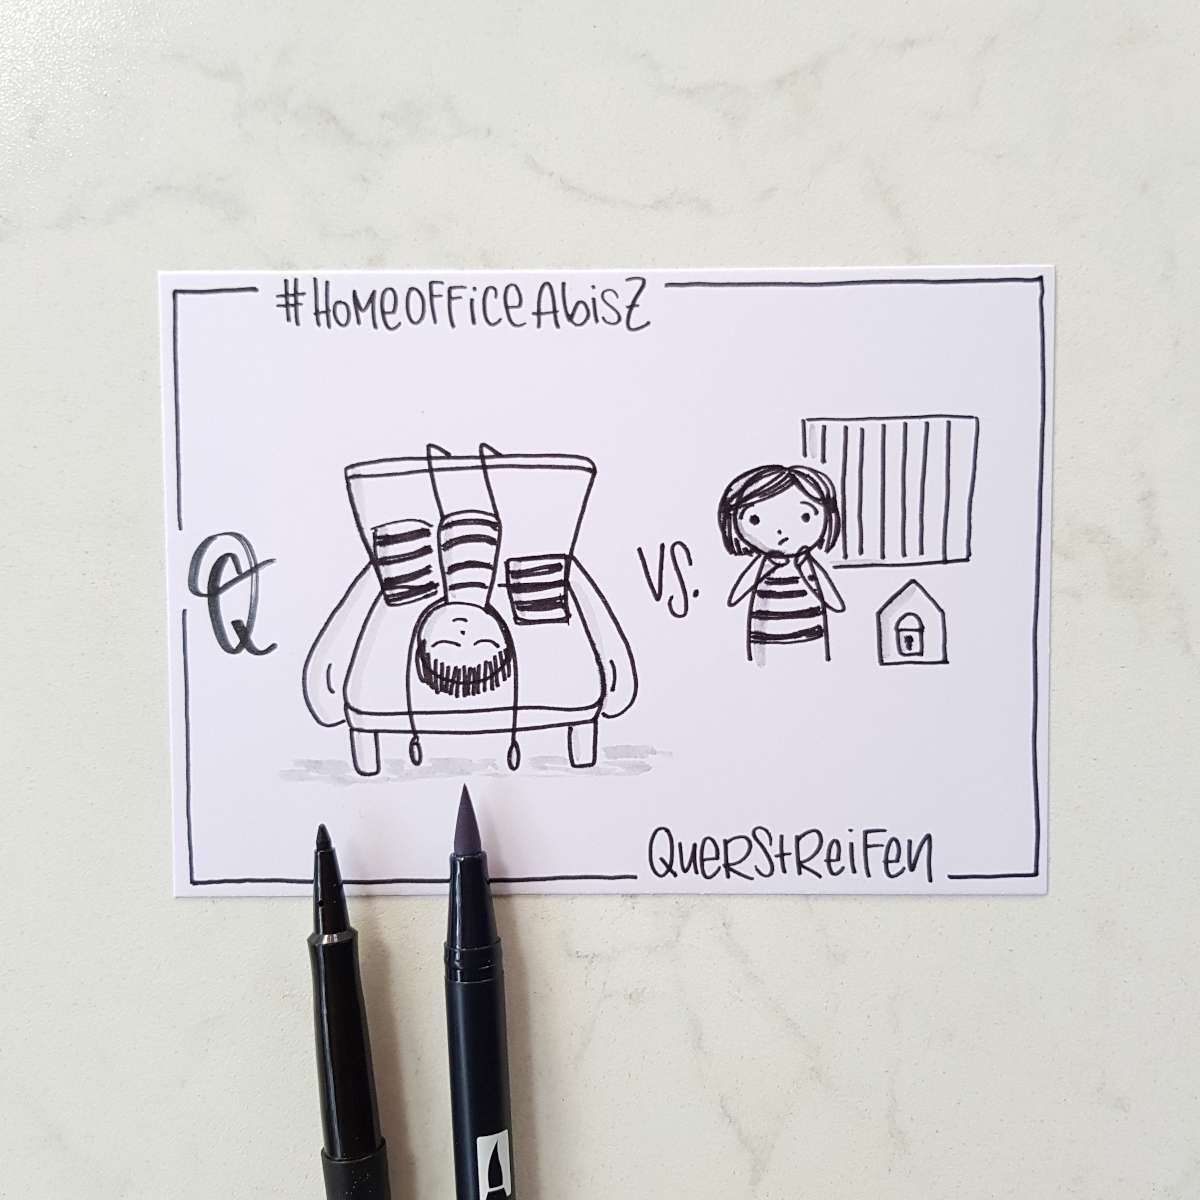 #HomeOfficeAbisZ
Q
VS.
QuerStreifen